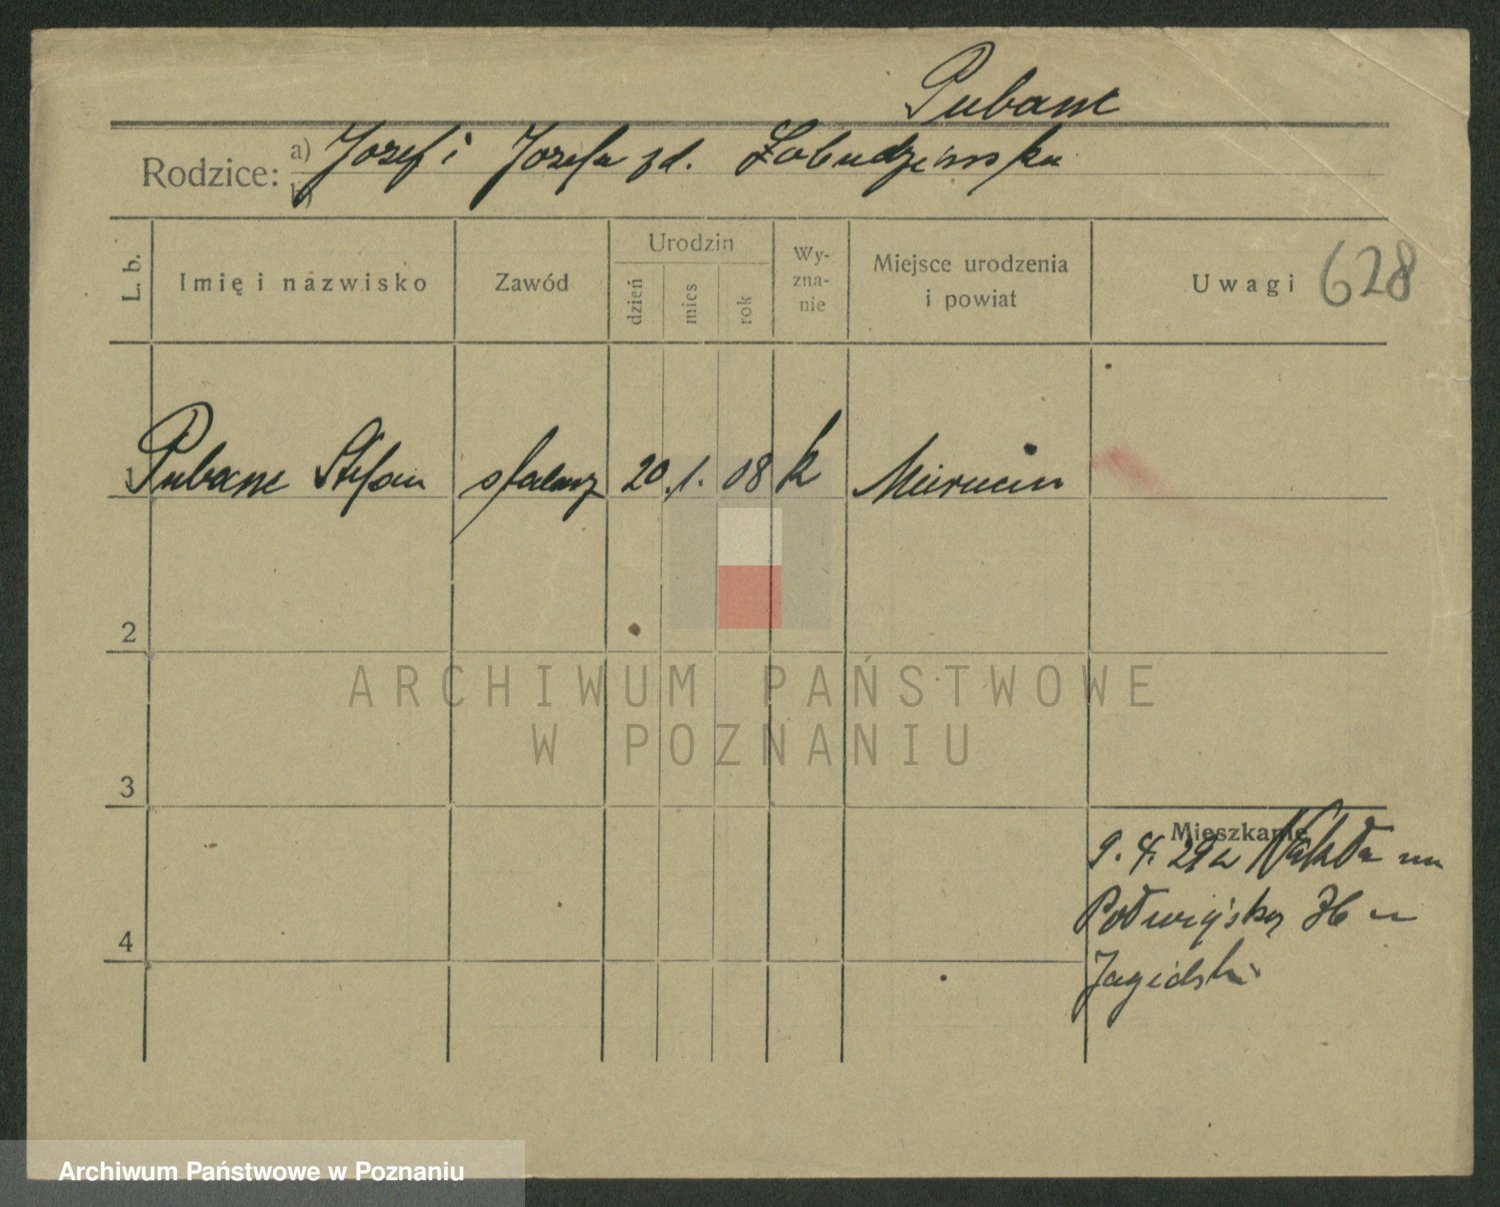 Pubanc
Rodzice: a) Józef i Józefa zd. Łobudzińska
b)
L. b. Imię i nazwisko Zawód Urodzin dzień mies rok Wy-zna-nie Miejsce urodzenia i powiat Uwagi 628
Pubanc Stefan stolarz 20. 1. 08 k Mierucin
2
3
4
Mieszkanie
9. 4. 29 z Nakła
36 u
ARCHIWUM PAŃSTWOWE
W POZNANIU
Archiwum Państwowe w Poznaniu